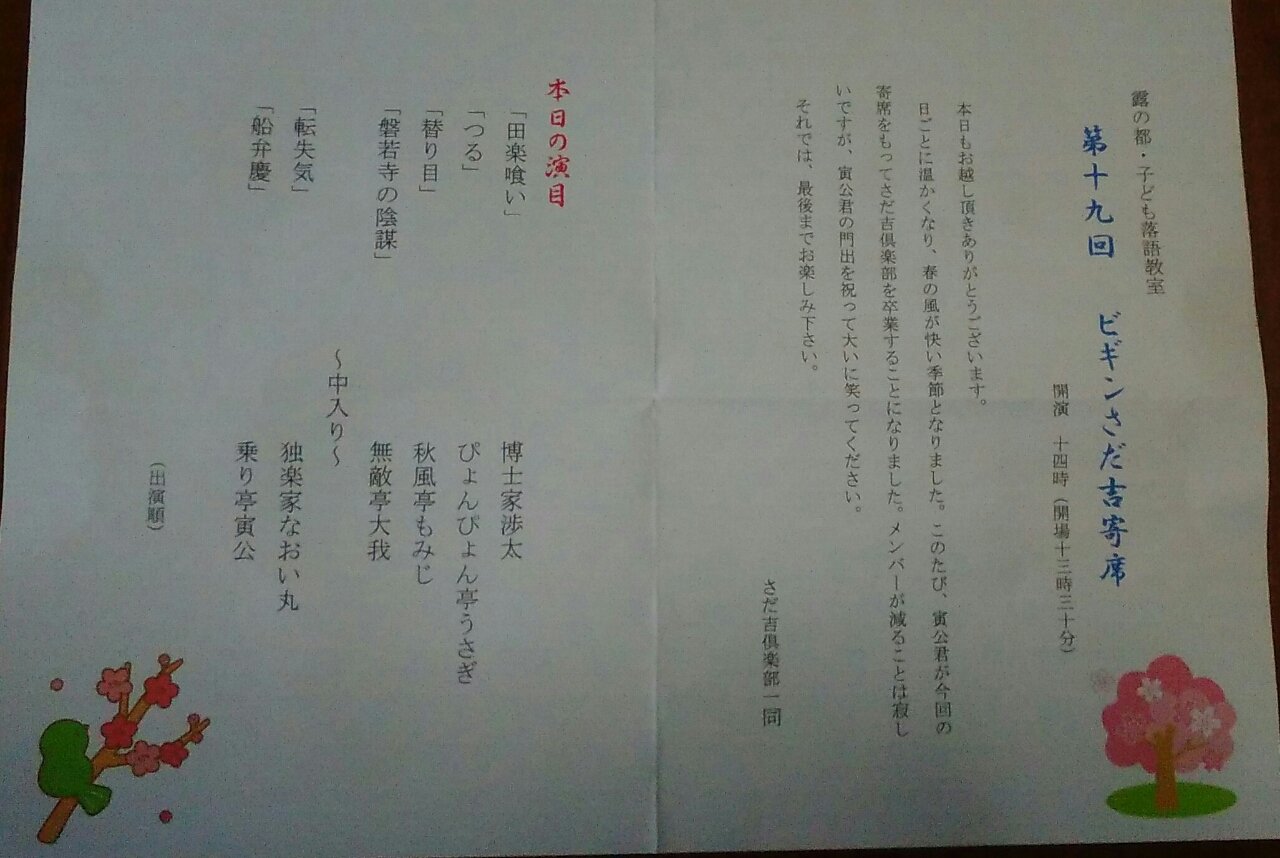 露の都・子ども落語教室
第十九回　ビギンさだ吉寄席
開演　十四時（開場十三時三十分）
本日もお越し頂きありがとうございます。
日ごとに温かくなり、春の風が快い季節となりました。このたび、寅公君が今回の
寄席をもってさだ吉倶楽部を卒業することになりました。メンバーが減ることは寂し
いですが、寅公君の門出を祝って大いに笑ってください。
それでは、最後までお楽しみ下さい。
さだ吉倶楽部一同
本日の演目
「田楽喰い」　博士家渉太
「つる」　ぴょんぴょん亭うさぎ
「替り目」　秋風亭もみじ
「磐若寺の陰謀」　無敵亭大我
～中入り～
「転失気」　独楽家なおい丸
「船弁慶」　乗り亭寅公
（出演順）